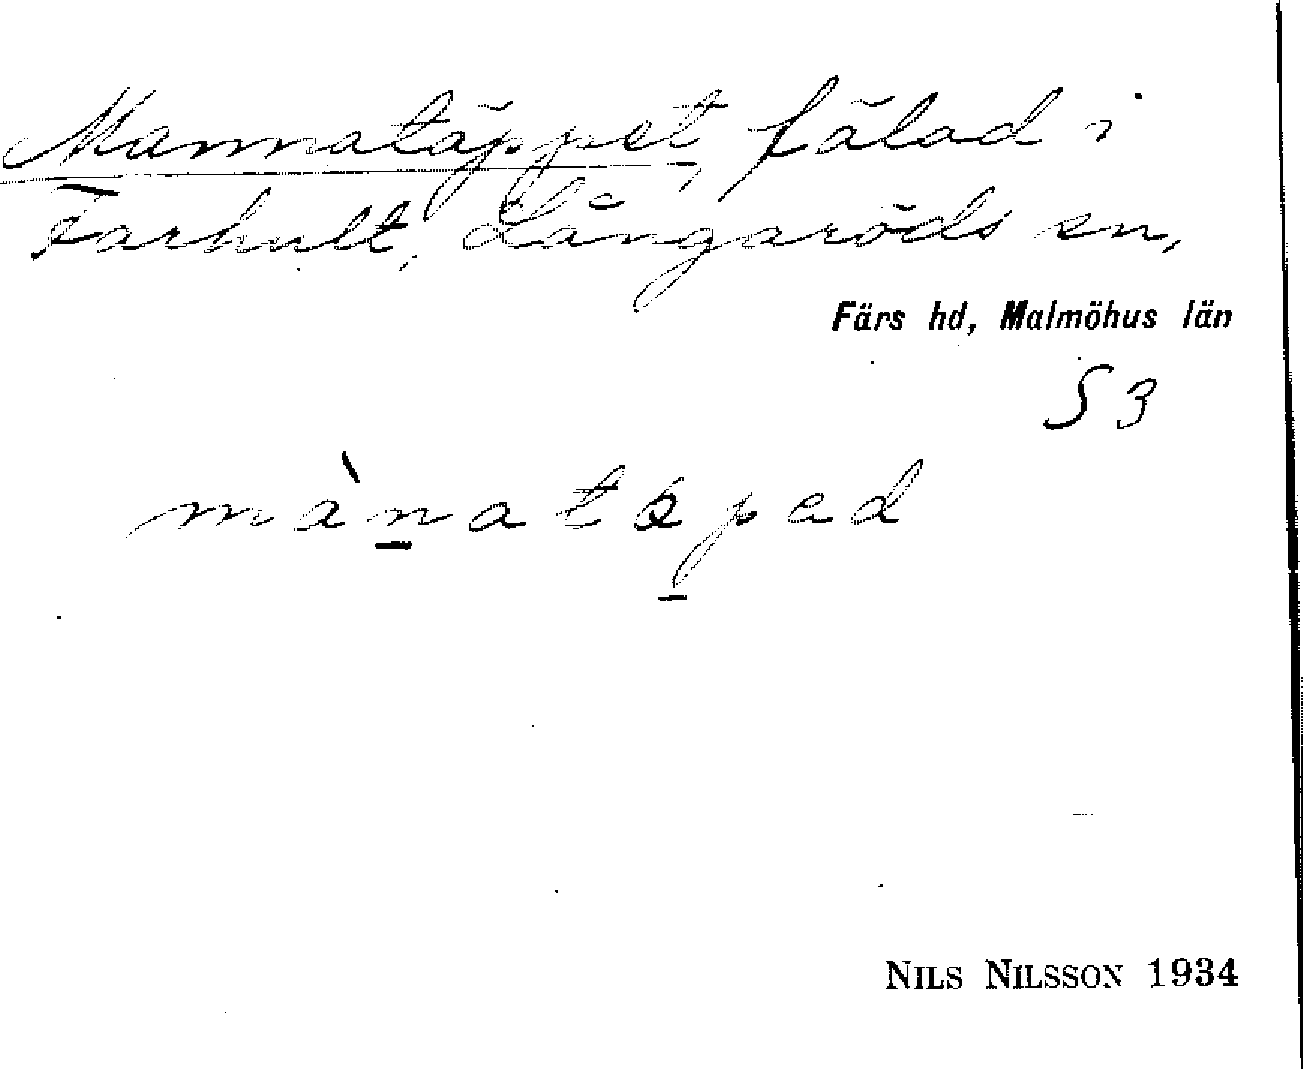 Mannatäppet, fälad i
Farhult, Långaröds sn,
Färs hd, Malmöhus län
S 3
mànatäped
NILS NILSSON 1934